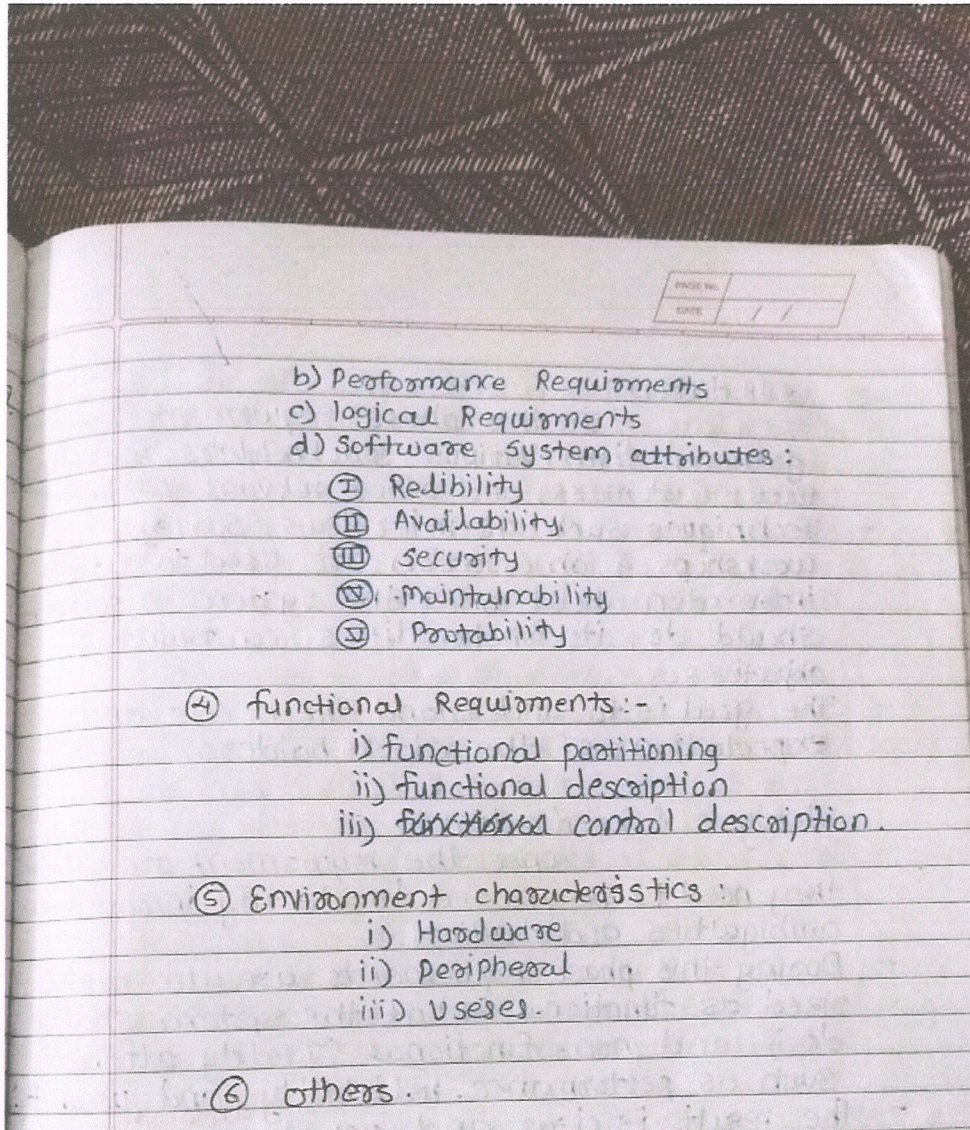 PAGE No.
DATE / /
b) Performance Requirments
c) logical Requirments
d) Software System attributes :
I Redibility
II Availability
III Security
IV Maintainability
V Protability
4 functional Requirments:-
i) functional partitioning
ii) functional description
iii) control description.
5 Environment characteristics :
i) Hardware
ii) Peripheral
iii) Useres.
6 others.